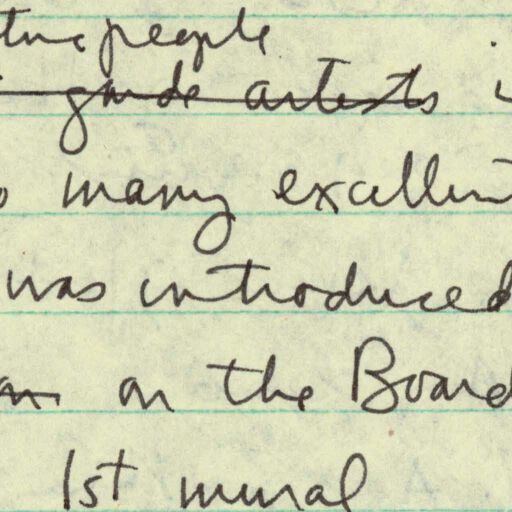 people
garde artists
many excellent
was introduced
on the Board
1st mural